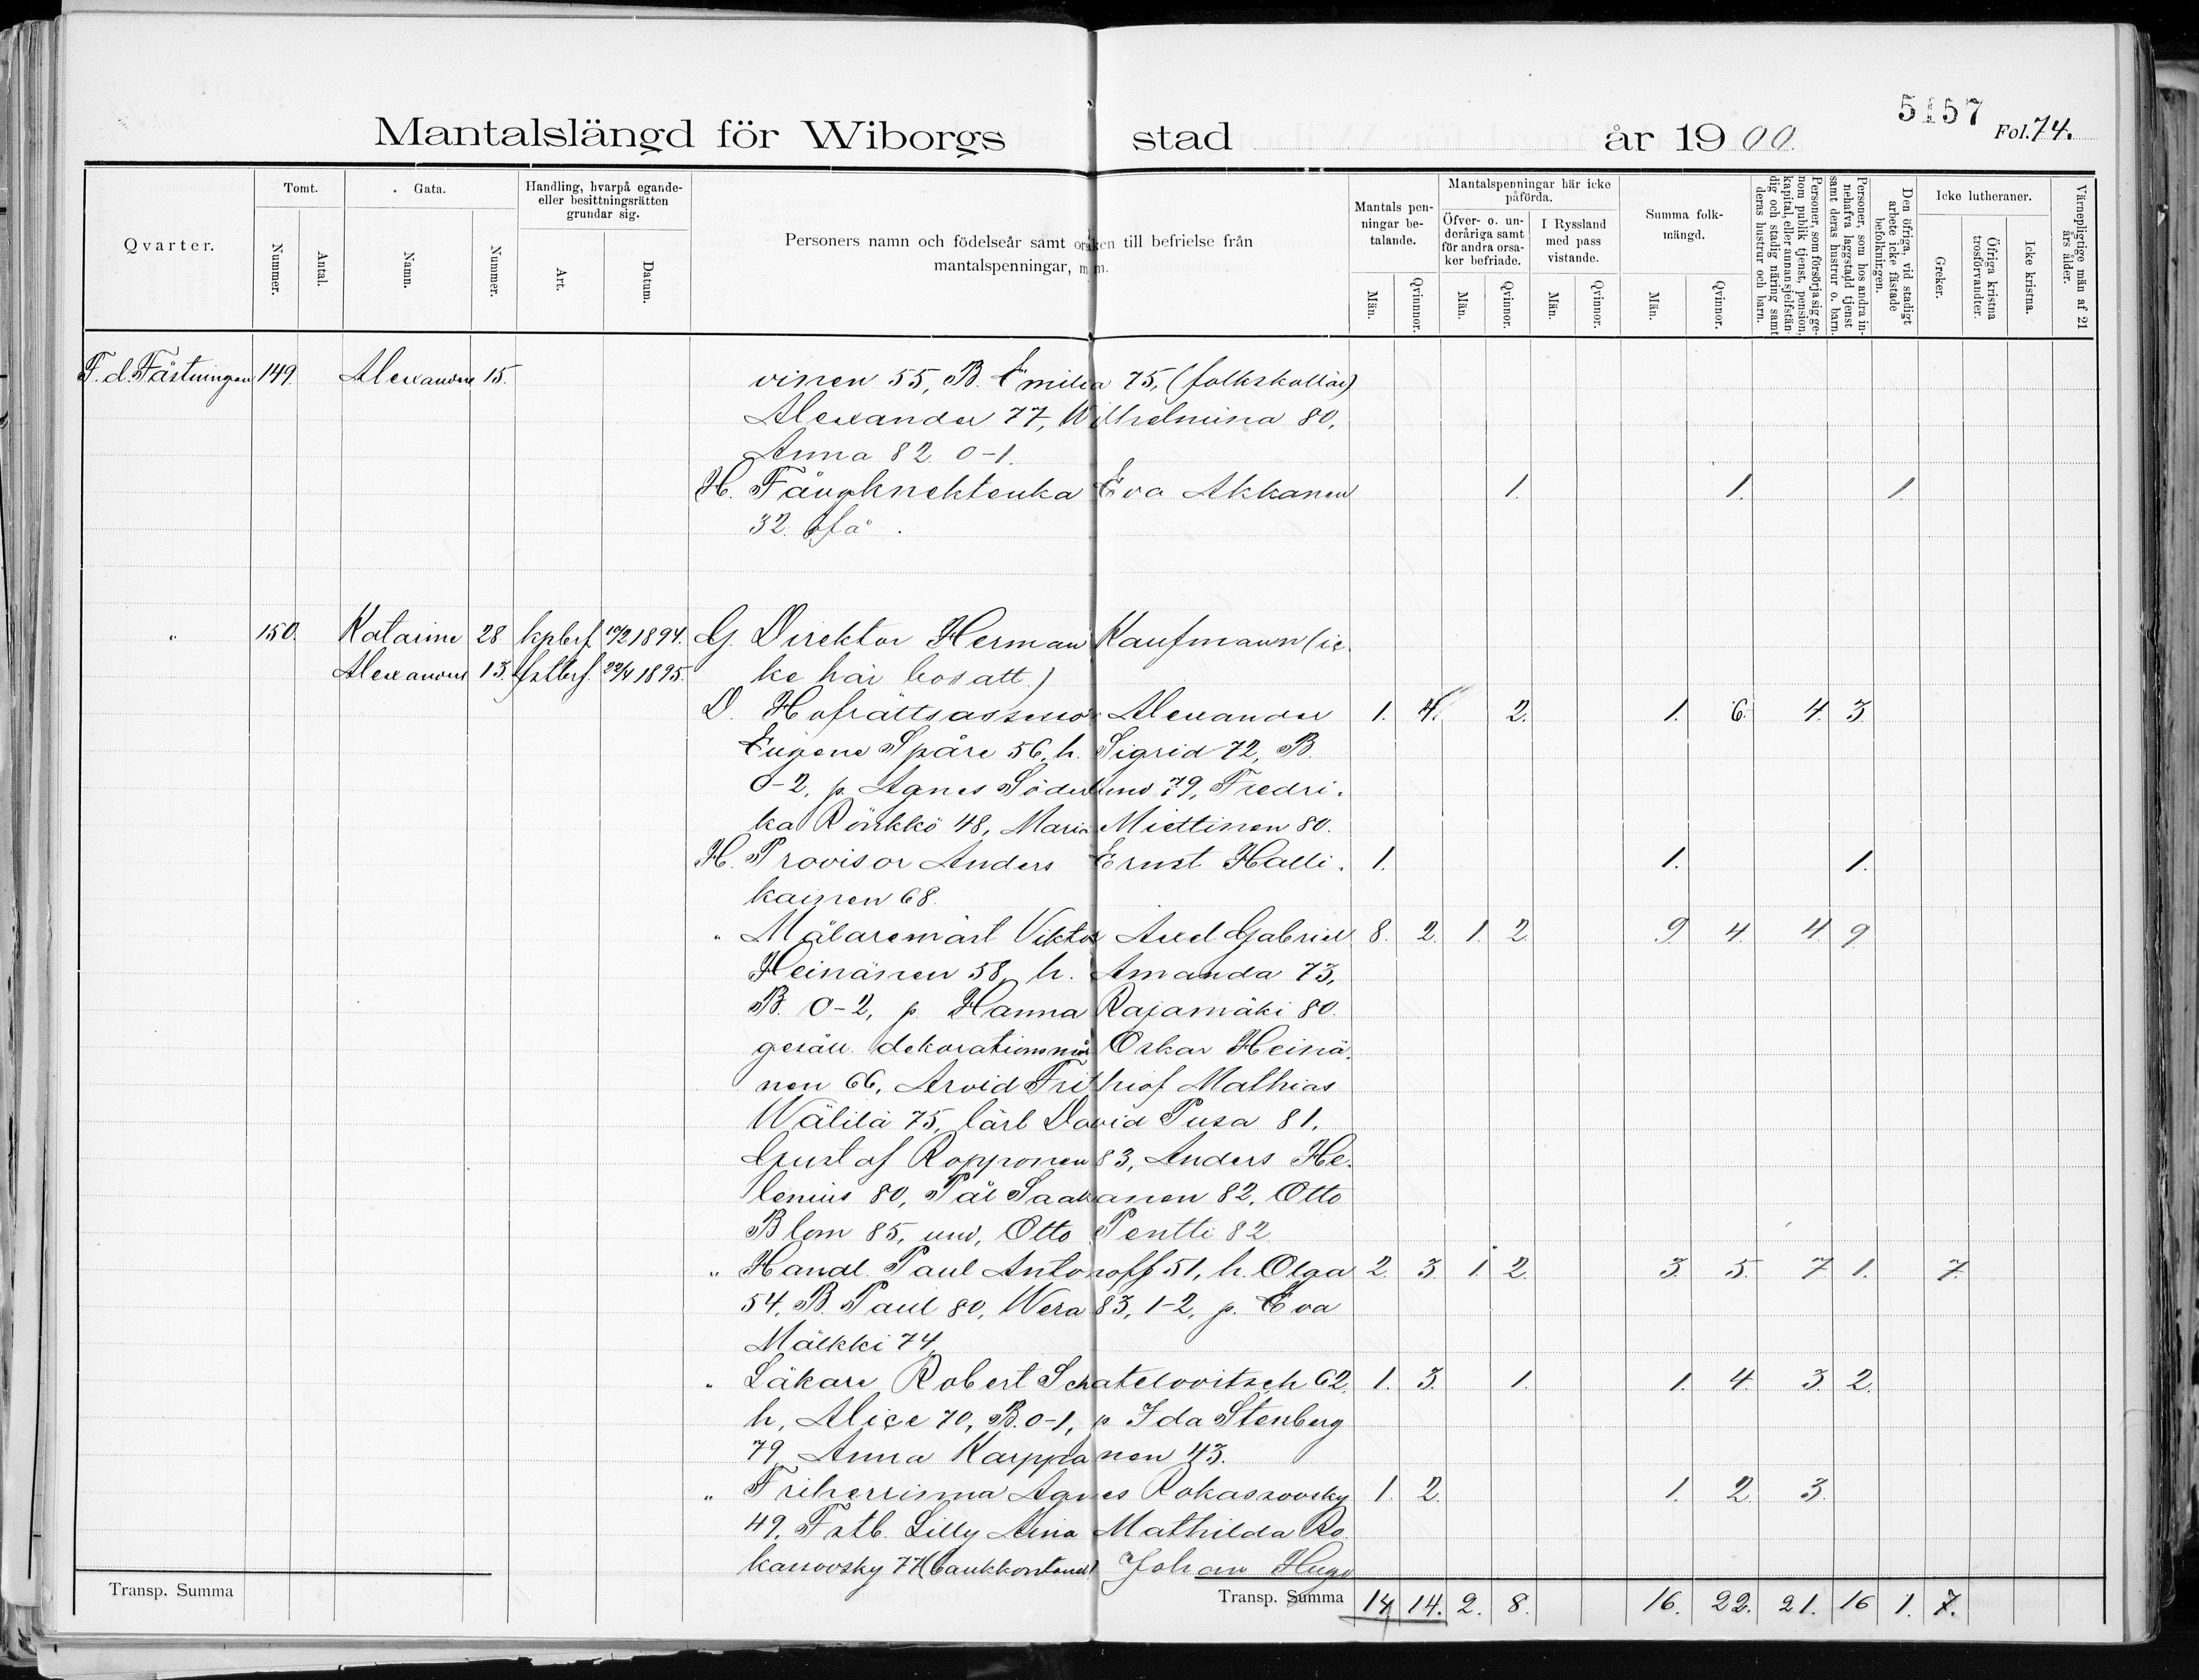 5157
Mantalslängd för Wiborgs stad år 1900. Fol. 74.
Qvarter.
Tomt.
Nummer.
Antal.
Gata.
Namn.
Nummer.
Handling, hvarpå egande-
eller besittningsrätten
grundar sig.
Art.
Datum.
Personers namn och födelseår samt orsaken till befrielse från
mantalspenningar, m. m.
Mantals pen-
ningar be-
talande.
Män.
Qvinnor.
Mantalspenningar här icke
påförda.
Öfver- o. un-
deråriga samt
för andra orsa-
ker befriade.
Män.
Qvinnor.
I Ryssland
med pass
vistande.
Män.
Qvinnor.
Summa folk-
mängd.
Män.
Qvinnor.
Personer, som försörja sig ge-
nom publik tjenst, pension,
kapital, eller annan sjelfstän-
dig och stadig näring samt
deras hustrur och barn.
Personer, som hos andra in-
nehafva laggstadd tjenst
samt deras hustrur o. barn.
Den öfriga, vid stadigt
arbete icke fästade
befolkningen.
Icke lutheraner.
Greker.
Öfriga kristna
trosförvandter.
Icke kristna.
Värnepligtige män af 21
års ålder.
F. d. Fästningen 149. Alexanders 15. vinen 55, B. Emilia 75, (folkskollär)
Alexander 77, Wilhelmina 80,
Anna 82. 0-1.
H. Fångknektenka Eva Akkanen 1. 1. 1.
32. ofå.
" 150. Katarine 28 kpbrf 1894. G. Direktor Herman Kaufmann (ic-
Alexanders 13. fstbrf. 22/4 1895. ke här bosatt.)
D. Hofrättsassessor Alexander 1. 4. 2. 1. 6. 4. 3.
Eugene Spåre 56, h. Sigrid 72, B.
0-2, p. Agnes Söderlund 79, Fredri-
ka Rönkkö 48, Maria Miettinen 80.
H. Provisor Anders Ernst Halli- 1. 1. 1.
kainen 68.
" Målaremäst Viktor Axel Gabriel 8. 2. 1. 2. 9. 4. 4. 9.
Heinänen 58, h. Amanda 73,
B. 0-2, p. Hanna Rajamäki 80.
gesäll. dekorationsmål Oskar Heinä-
nen 66, Arvid Frithiof Mathias
Wälilä 75, lärl David Pusa 81,
Gustaf Ropponen 83, Anders He-
lenius 80, Pål Saakanen 82, Otto
Blom 85, und, Otto Pentti 82.
" Handl. Paul Antonoff 51, h. Olga 2. 3. 1. 2. 3. 5. 7. 1. 7.
54, B. Paul 80, Wera 83, 1-2, p. Eva
Mälkki 74,
" Läkare Robert Schatelowitsch 62, 1. 3. 1. 1. 4. 3. 2.
h, Alice 70, B. 0-1, p. Ida Stenberg
79, Anna Karppanen 43.
" Friherrinna Agnes Rokassovsky 1. 2. 1. 2. 3.
49, Fstb. Lilly Aina Mathilda Ro-
kassovsky 77 (bankkontorist) Johan Hugo
Transp. Summa Transp. Summa 14 14. 2. 8. 16. 22. 21. 16 1. 7.